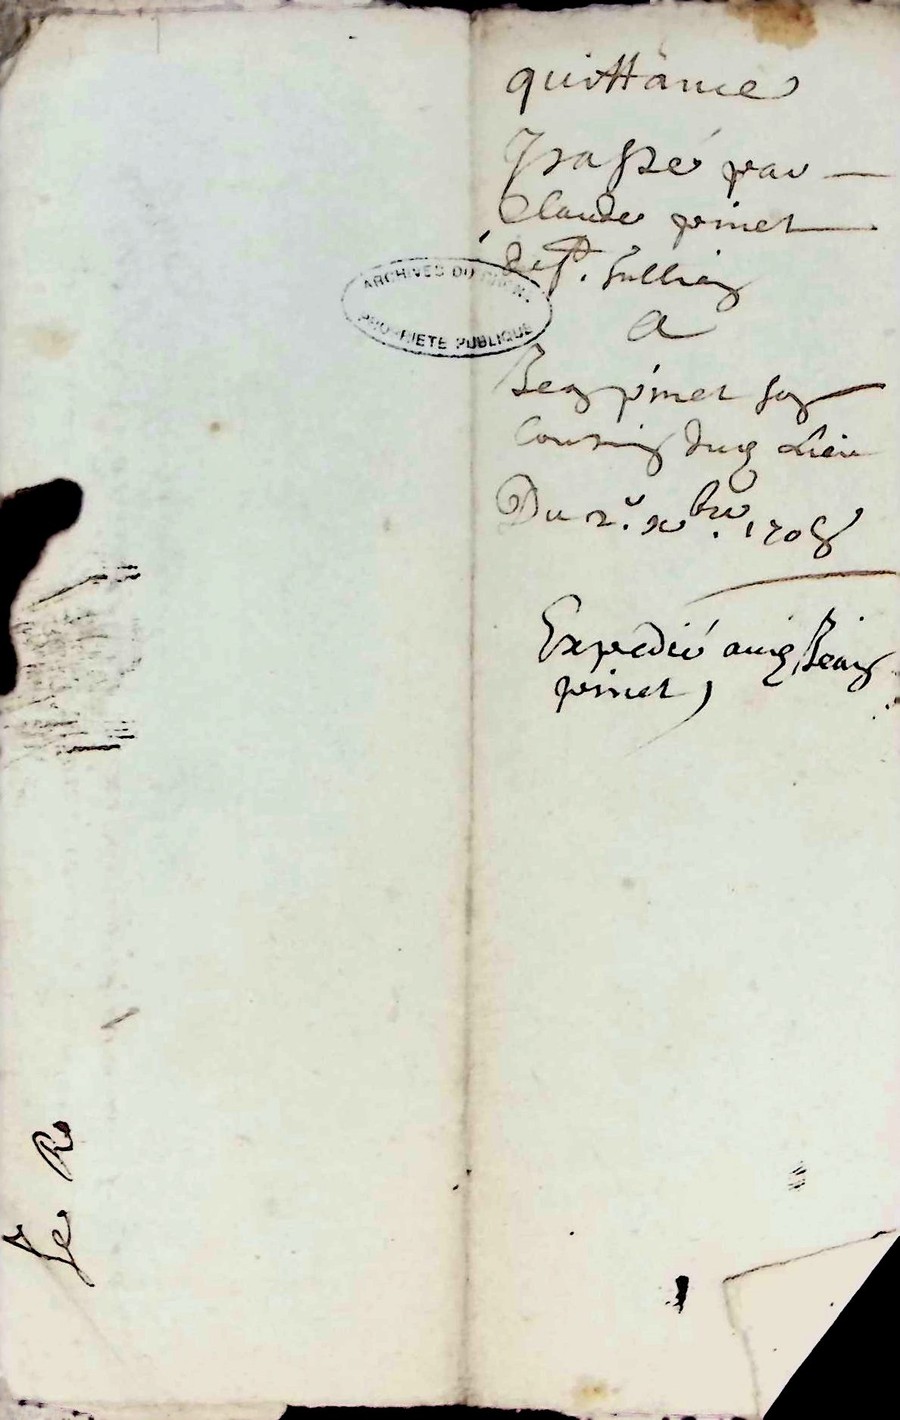 quittance
passé par
Claude pinet
de St. Jullien
a
Jean pinet son
Cousin dud Lieu
Du 2e. xbre. 1705
Expedié aud Jean
pinet
ARCHIVES DU RHONE
PROPRIETE PUBLIQUE
Je R